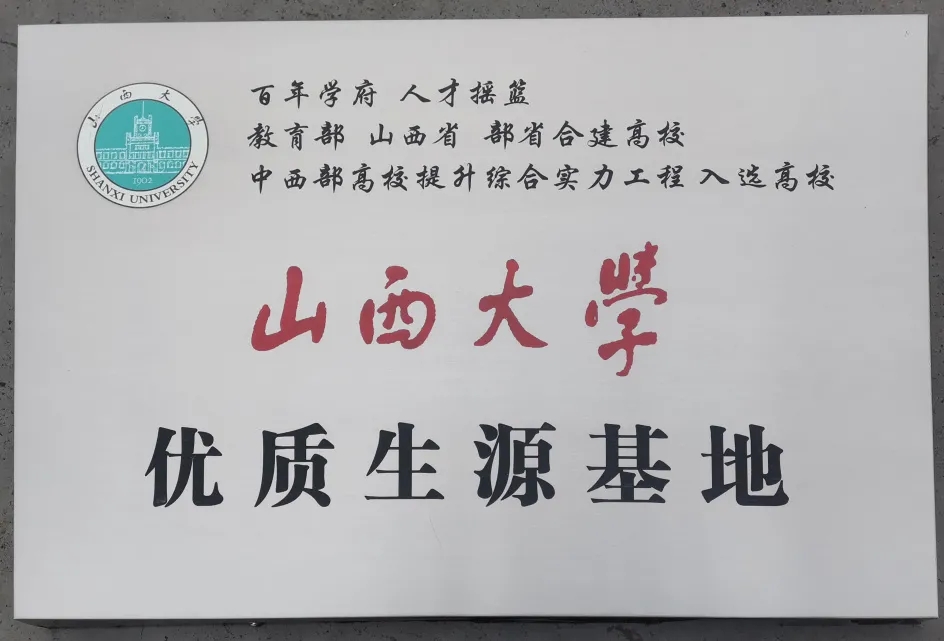 山西大学
1902
SHANXI UNIVERSITY
百年学府 人才摇篮
教育部 山西省 部省合建高校
中西部高校提升综合实力工程 入选高校
山西大學
优质生源基地